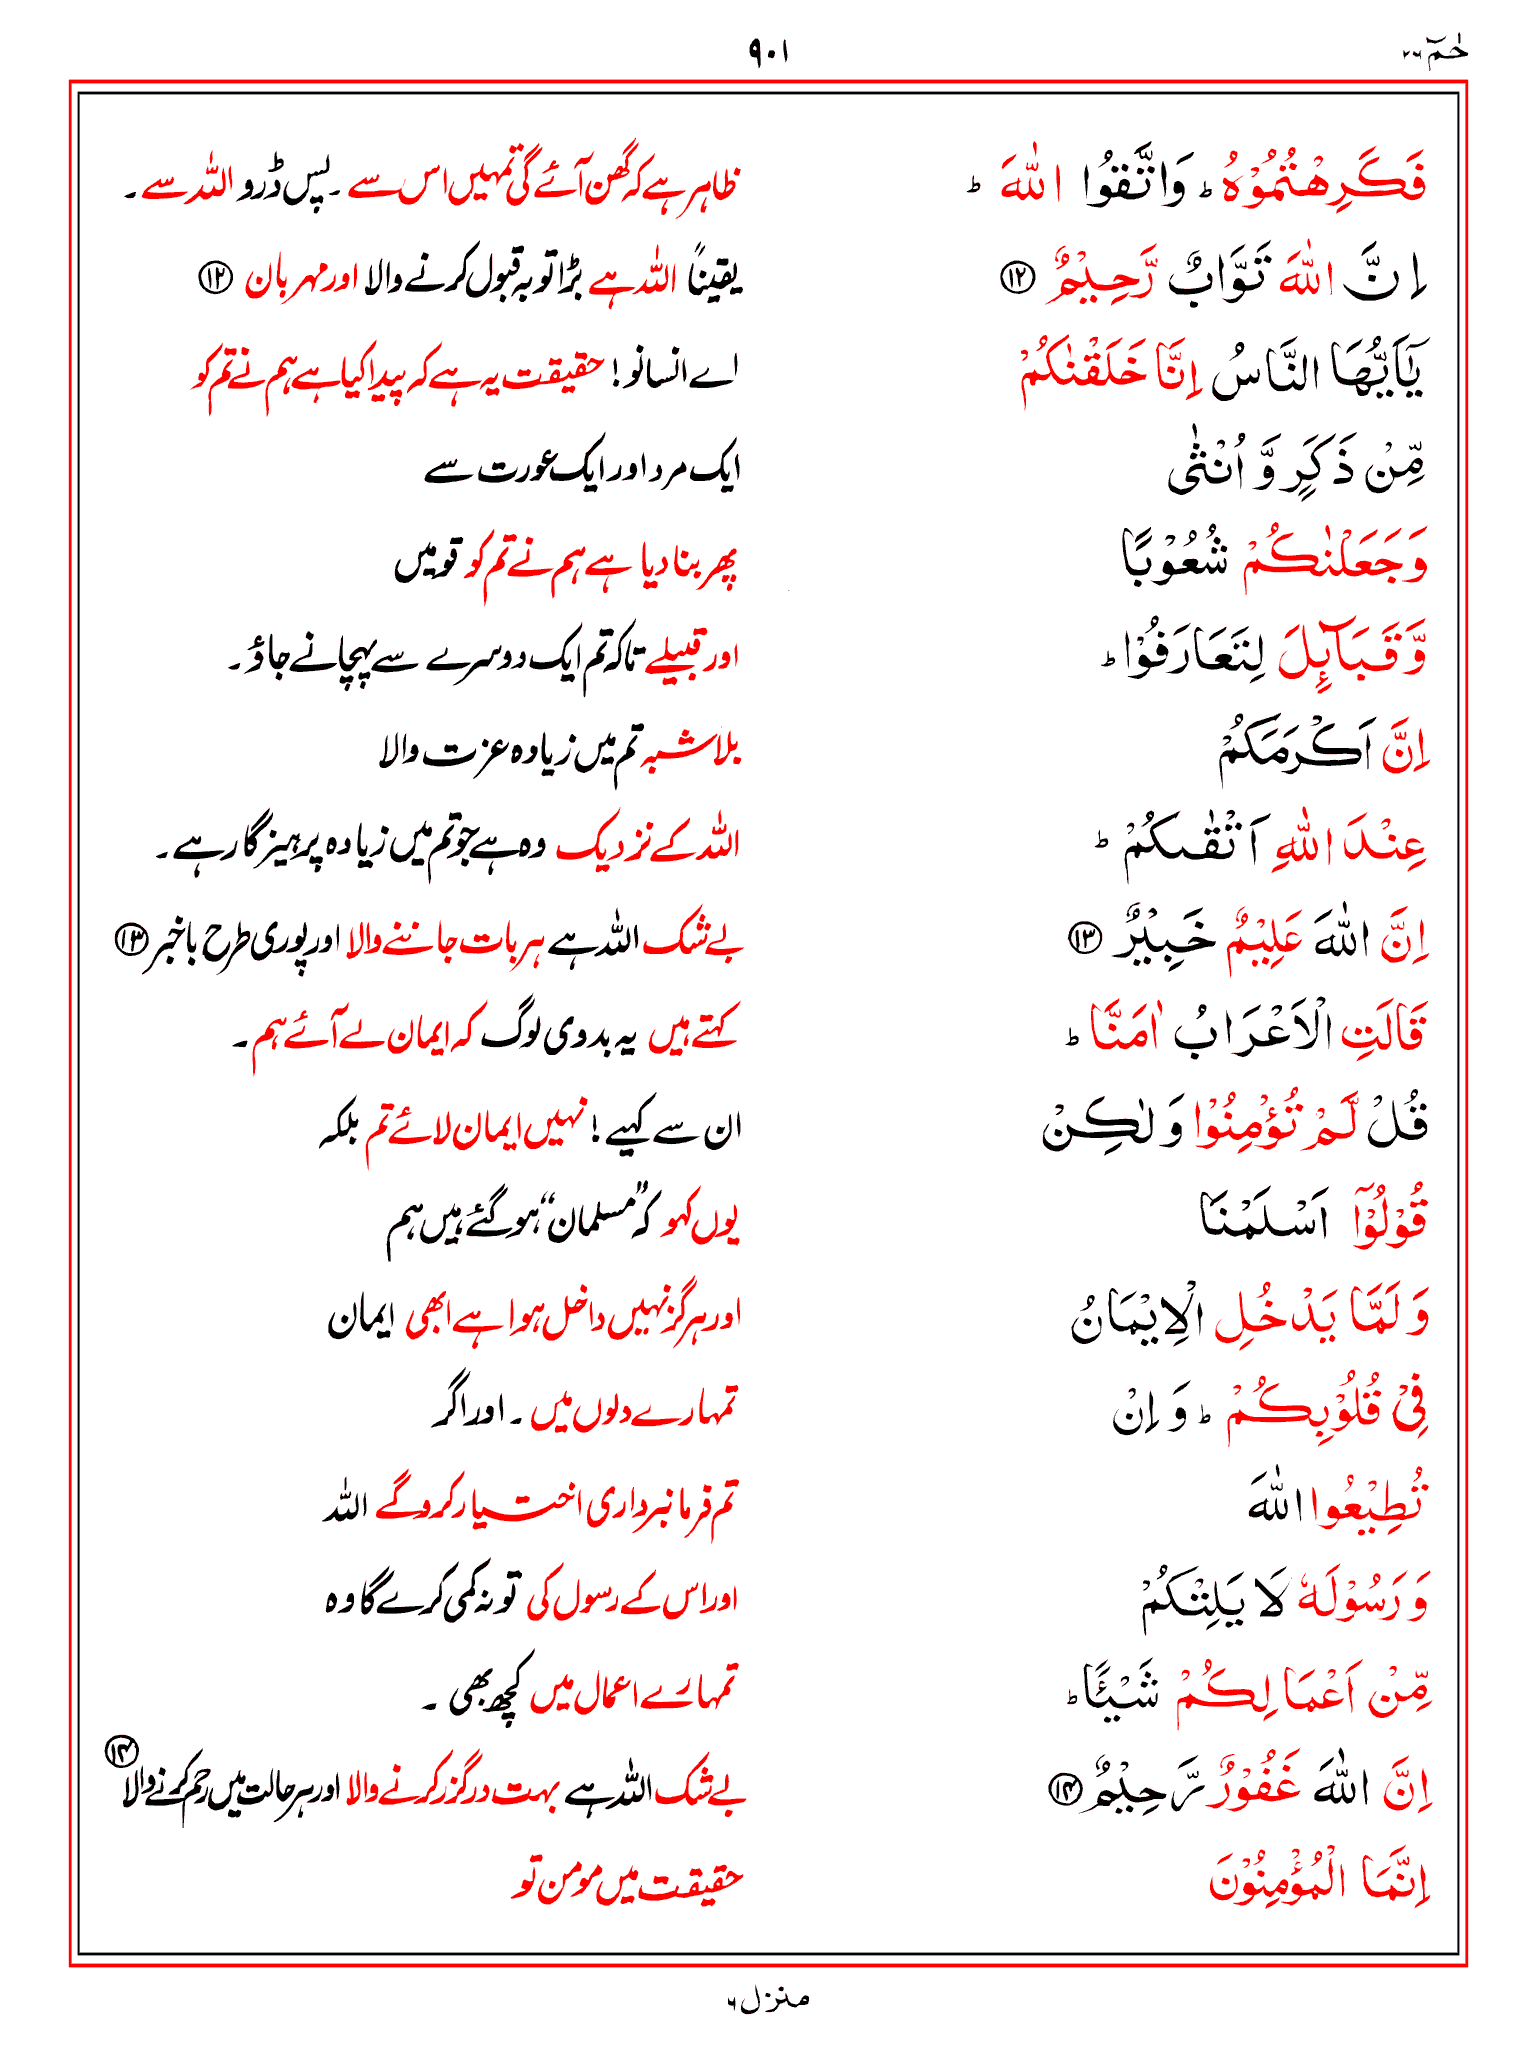 حٰمٓ ۲۶
۹۰۱
فَكَرِهْتُمُوْهُ ؕ وَاتَّقُوا اللّٰهَ ؕ ظاہر ہے کہ گھن آئے گی تمہیں اس سے ۔ پس ڈرو اللہ سے ۔
اِنَّ اللّٰهَ تَوَّابٌ رَّحِيْمٌ ⑫ یقیناً اللہ ہے بڑا توبہ قبول کرنے والا اور مہربان ⑫
يٰۤاَيُّهَا النَّاسُ اِنَّا خَلَقْنٰكُمْ اے انسانو! حقیقت یہ ہے کہ پیدا کیا ہے ہم نے تم کو
مِّنْ ذَكَرٍ وَّ اُنْثٰى ایک مرد اور ایک عورت سے
وَجَعَلْنٰكُمْ شُعُوْبًا پھر بنا دیا ہے ہم نے تم کو قومیں
وَّقَبَآئِلَ لِتَعَارَفُوْا ؕ اور قبیلے تاکہ تم ایک دوسرے سے پہچانے جاؤ ۔
اِنَّ اَكْرَمَكُمْ بلاشبہ تم میں زیادہ عزت والا
عِنْدَ اللّٰهِ اَتْقٰىكُمْ ؕ اللہ کے نزدیک وہ ہے جو تم میں زیادہ پرہیزگار ہے ۔
اِنَّ اللّٰهَ عَلِيْمٌ خَبِيْرٌ ⑬ بے شک اللہ ہے ہر بات جاننے والا اور پوری طرح باخبر ⑬
قَالَتِ الْاَعْرَابُ اٰمَنَّا ؕ کہتے ہیں یہ بدوی لوگ کہ ایمان لے آئے ہم ۔
قُلْ لَّمْ تُؤْمِنُوْا وَلٰكِنْ ان سے کہیے! نہیں ایمان لائے تم بلکہ
قُوْلُوْۤا اَسْلَمْنَا یوں کہو کہ ”مسلمان“ ہو گئے ہیں ہم
وَلَمَّا يَدْخُلِ الْاِيْمَانُ اور ہرگز نہیں داخل ہوا ہے ابھی ایمان
فِيْ قُلُوْبِكُمْ ؕ وَ اِنْ تمہارے دلوں میں ۔ اور اگر
تُطِيْعُوا اللّٰهَ تم فرمانبرداری اختیار کرو گے اللہ
وَرَسُوْلَهٗ لَا يَلِتْكُمْ اور اس کے رسول کی تو نہ کمی کرے گا وہ
مِّنْ اَعْمَالِكُمْ شَيْـًٔا ؕ تمہارے اعمال میں کچھ بھی ۔
اِنَّ اللّٰهَ غَفُوْرٌ رَّحِيْمٌ ⑭ بے شک اللہ ہے بہت درگزر کرنے والا اور ہر حالت میں رحم کرنے والا ⑭
اِنَّمَا الْمُؤْمِنُوْنَ حقیقت میں مومن تو
منزل ۶